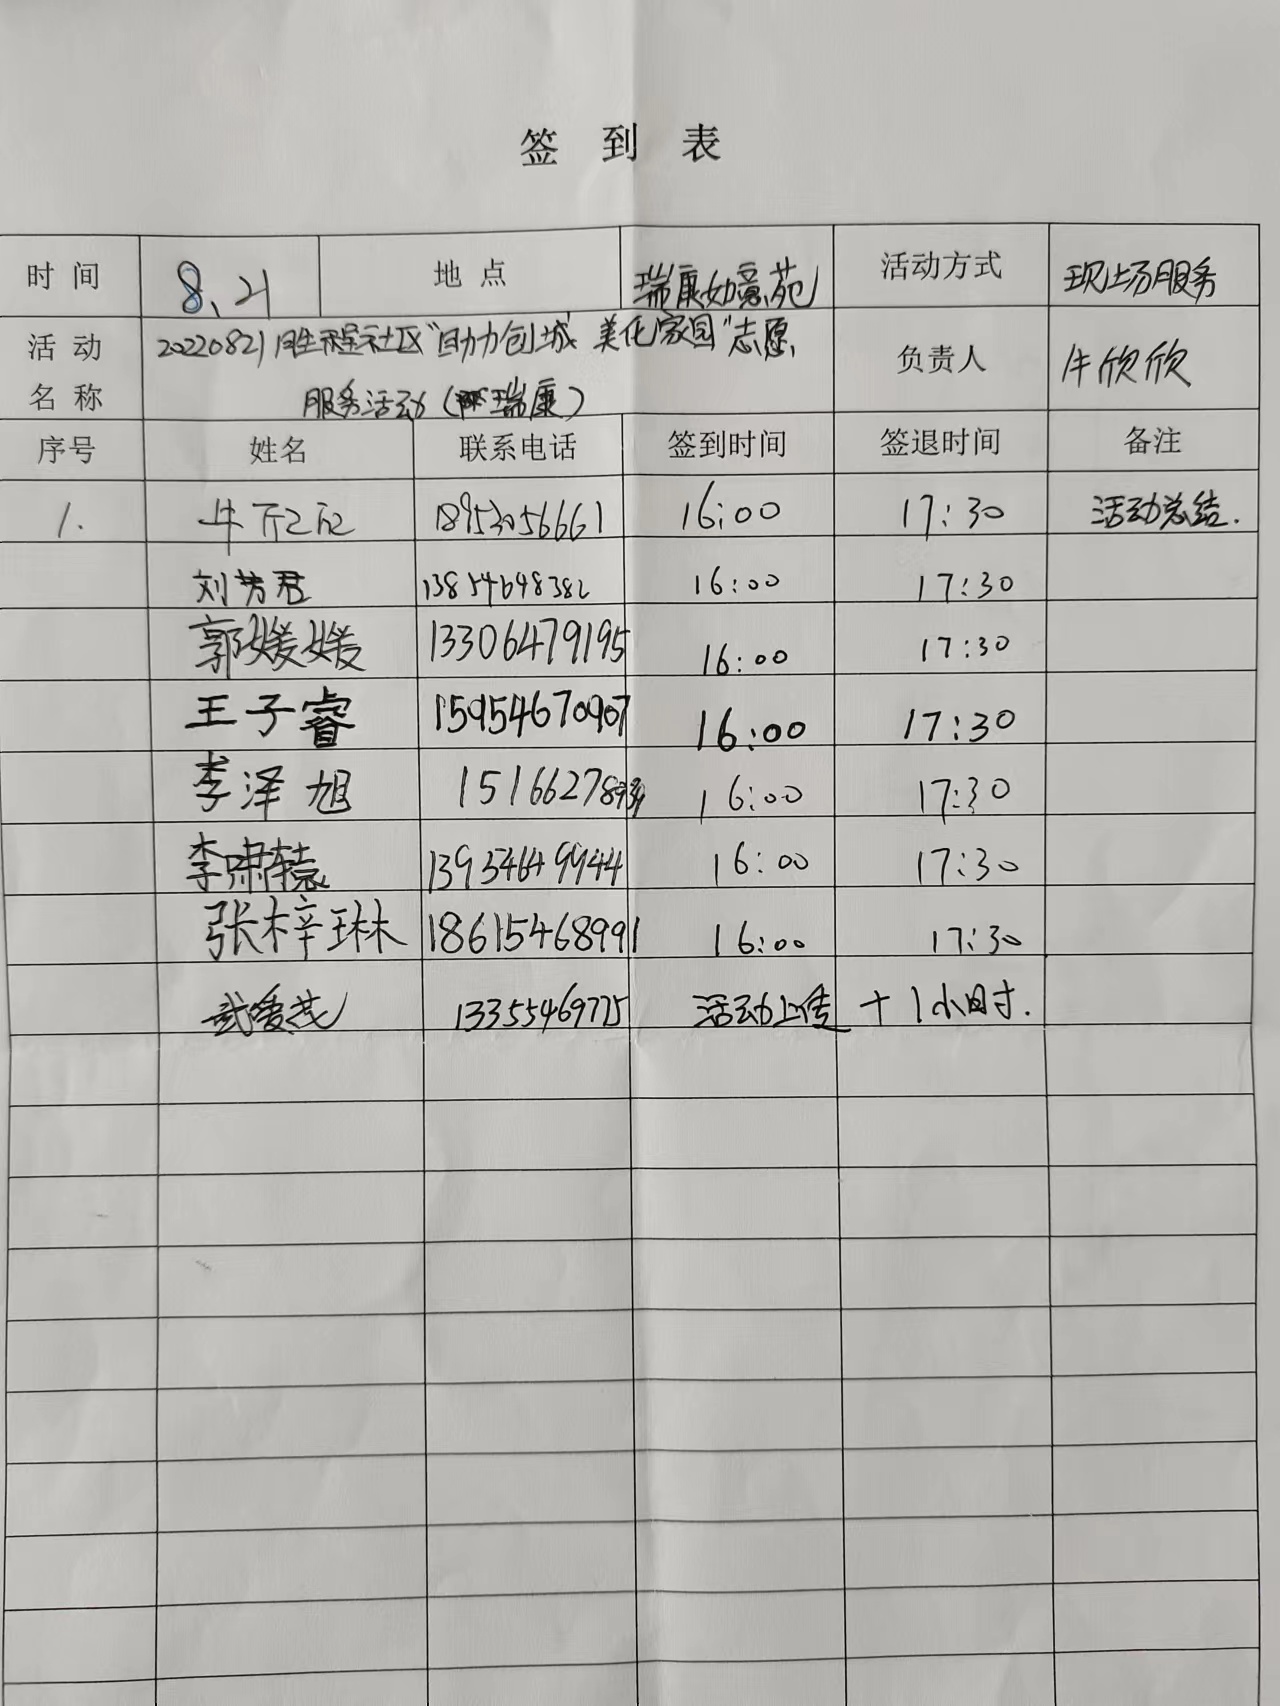 签到表
时间 8.21 地点 瑞康如意苑 活动方式 现场服务
活动名称 20220821胜程社区“助力创城 美化家园”志愿 负责人 牛欣欣
服务活动(瑞康)
序号 姓名 联系电话 签到时间 签退时间 备注
1. 牛 16:00 17:30 活动总结.
刘芳君 13854648382 16:00 17:30
郭媛媛 13306479195 16:00 17:30
王子睿 15954670907 16:00 17:30
李泽旭 16:00 17:30
李啸辕 13954649944 16:00 17:30
张梓琳 18615468991 16:00 17:30
武爱茂 13355469775 活动上传 +1小时.